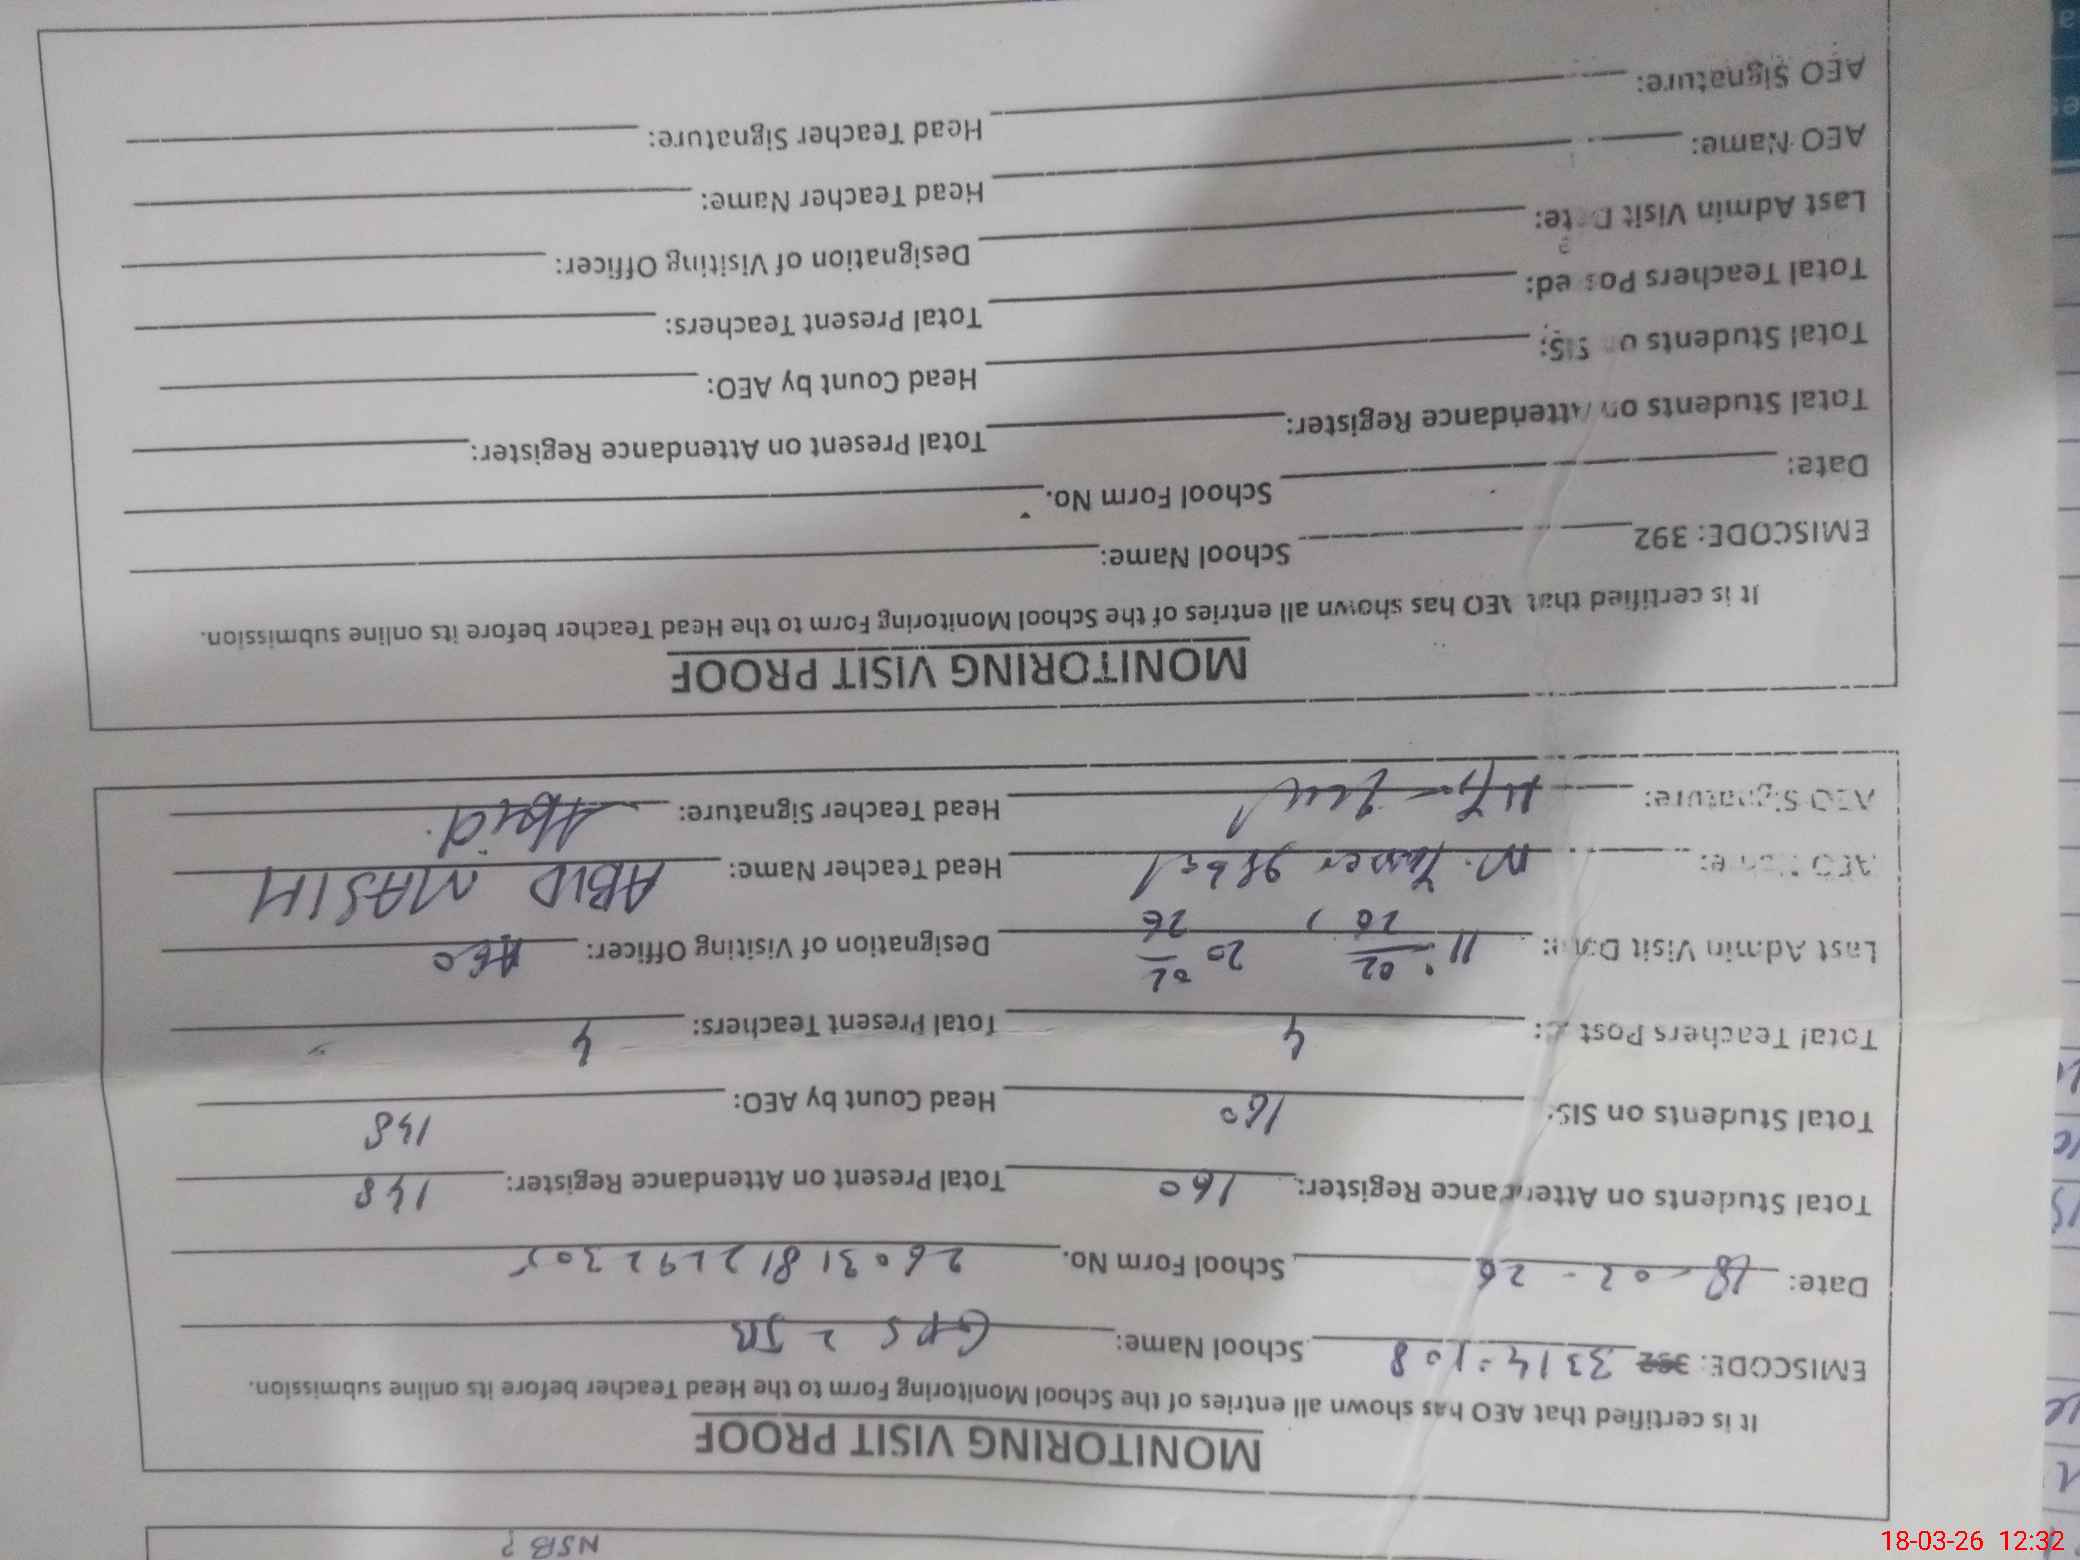 NSB ?
MONITORING VISIT PROOF
It is certified that AEO has shown all entries of the School Monitoring Form to the Head Teacher before its online submission.
EMISCODE: 392 3314-108 School Name: GPS 2 JB
Date: 18-03-26 School Form No. 26031812292305
Total Students on Attendance Register: 160 Total Present on Attendance Register: 148
Total Students on SIS: 160 Head Count by AEO: 148
Total Teachers Posted: 4 Total Present Teachers: 4
Last Admin Visit Date: 11-02 26, 20 02 26 Designation of Visiting Officer: AEO
AEO Name: M. Yasser Iqbal Head Teacher Name: ABID MASIH
AEO Signature: Head Teacher Signature: Abid
MONITORING VISIT PROOF
It is certified that AEO has shown all entries of the School Monitoring Form to the Head Teacher before its online submission.
EMISCODE: 392 School Name:
Date: School Form No.
Total Students on Attendance Register: Total Present on Attendance Register:
Total Students on SIS: Head Count by AEO:
Total Teachers Posted: Total Present Teachers:
Last Admin Visit Date: Designation of Visiting Officer:
AEO Name: Head Teacher Name:
AEO Signature: Head Teacher Signature:
18-03-26 12:32